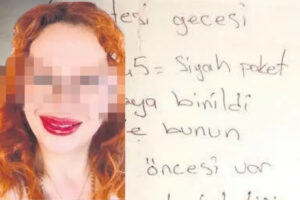 tesi gecesi
45 = Siyah paket
aya binildi
e bunun
öncesi var